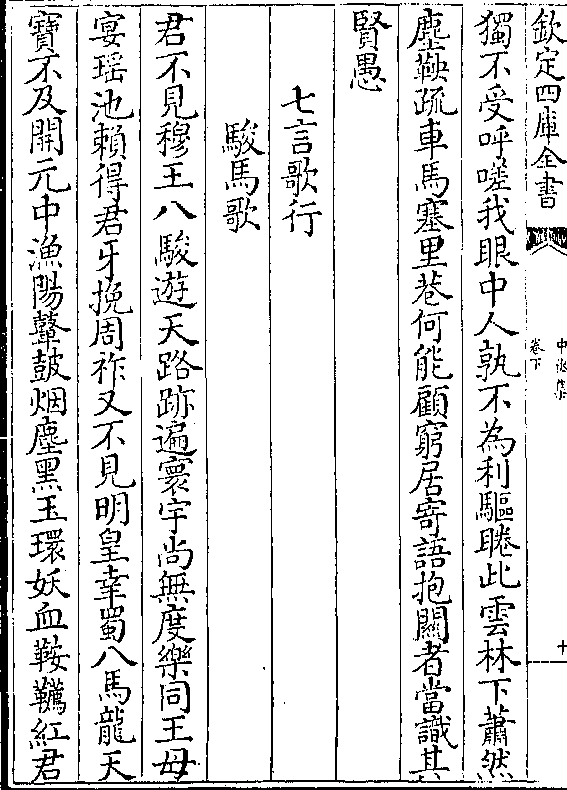 欽定四庫全書
卷下
十
獨不受呼嗟我眼中人孰不為利驅睠此雲林下蕭然
塵鞅疏車馬塞里巷何能顧窮居寄語抱關者當識其
賢愚
七言歌行
駿馬歌
君不見穆王八駿遊天路跡遍寰宇尚無度樂同王母
宴瑶池賴得君牙挽周祚又不見明皇幸蜀八馬龍天
寶不及開元中漁陽鼙鼓烟塵黑玉環妖血鞍韉紅君